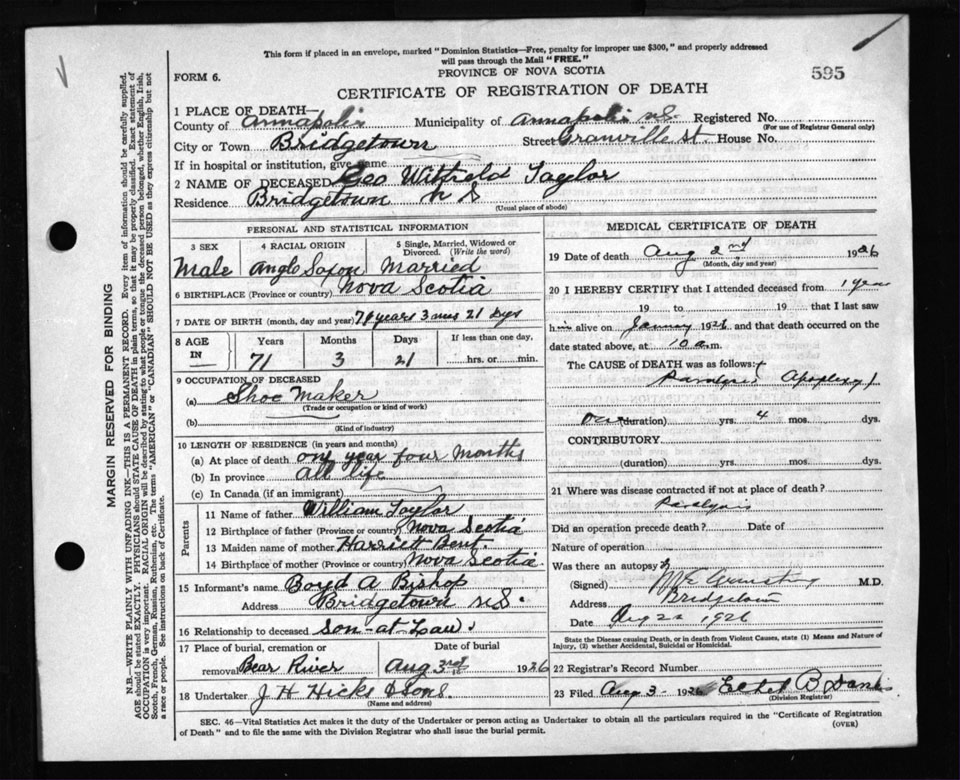 This form if placed in an envelope, marked "Dominion Statistics—Free, penalty for improper use $300," and properly addressed
will pass through the Mail "FREE."
FORM 6.
PROVINCE OF NOVA SCOTIA
595
CERTIFICATE OF REGISTRATION OF DEATH
1 PLACE OF DEATH—
County of Annapolis Municipality of Annapolis N.S. Registered No.
(For use of Registrar General only)
City or Town Bridgetown Street Granville St. House No.
If in hospital or institution, give name
2 NAME OF DECEASED Geo Witfield Taylor
Residence Bridgetown N S
(Usual place of abode)
PERSONAL AND STATISTICAL INFORMATION
3 SEX 4 RACIAL ORIGIN 5 Single, Married, Widowed or Divorced. (Write the word)
Male Anglo Saxon Married
6 BIRTHPLACE (Province or country) Nova Scotia
7 DATE OF BIRTH (month, day and year) 71 years 3 mos 21 Dys
8 AGE IN Years Months Days If less than one day,
71 3 21 hrs. or min.
9 OCCUPATION OF DECEASED
(a) Shoe Maker
(Trade or occupation or kind of work)
(b)
(Kind of industry)
10 LENGTH OF RESIDENCE (in years and months)
(a) At place of death one year four Months
(b) In province all life
(c) In Canada (if an immigrant)
Parents
11 Name of father William Taylor
12 Birthplace of father (Province or country) Nova Scotia
13 Maiden name of mother Harriett Bent.
14 Birthplace of mother (Province or country) Nova Scotia.
15 Informant's name Boyd A Bishop
Address Bridgetown N.S.
16 Relationship to deceased Son-at Law.
17 Place of burial, cremation or removal Bear River Date of burial Aug 3rd 1926
18 Undertaker J H Hicks & Sons.
(Name and address)
MEDICAL CERTIFICATE OF DEATH
19 Date of death Aug 2nd 1926
(Month, day and year)
20 I HEREBY CERTIFY that I attended deceased from 1 year
19 to 19 that I last saw
him alive on January 1926 and that death occurred on the
date stated above, at 10 a m.
The CAUSE OF DEATH was as follows:
Paralysis Apoplexy
(duration) yrs. 4 mos. dys.
CONTRIBUTORY
(duration) yrs. mos. dys.
21 Where was disease contracted if not at place of death?
Paralysis
Did an operation precede death? Date of
Nature of operation
Was there an autopsy?
(Signed) M.D.
Address Bridgetown
Date 1926
State the Disease causing Death, or in death from Violent Causes, state (1) Means and Nature of
Injury, (2) whether Accidental, Suicidal or Homicidal.
22 Registrar's Record Number
23 Filed Aug 3 - 1926 Ethel B
(Division Registrar)
SEC. 46—Vital Statistics Act makes it the duty of the Undertaker or person acting as Undertaker to obtain all the particulars required in the "Certificate of Registration
of Death" and to file the same with the Division Registrar who shall issue the burial permit.
(OVER)
MARGIN RESERVED FOR BINDING
N.B.—WRITE PLAINLY WITH UNFADING INK—THIS IS A PERMANENT RECORD. Every item of information should be carefully supplied.
AGE should be stated EXACTLY. PHYSICIANS should STATE CAUSE OF DEATH in plain terms, so that it may be properly classified. Exact statement of
OCCUPATION is very important. RACIAL ORIGIN will be described by stating to what people or tongue the deceased person belonged, whether English, Irish,
Scotch, French, German, Russian, Ruthenian, etc. The terms "AMERICAN" or "CANADIAN" SHOULD NOT BE USED as they express citizenship but not
a race or people. See instructions on back of Certificate.